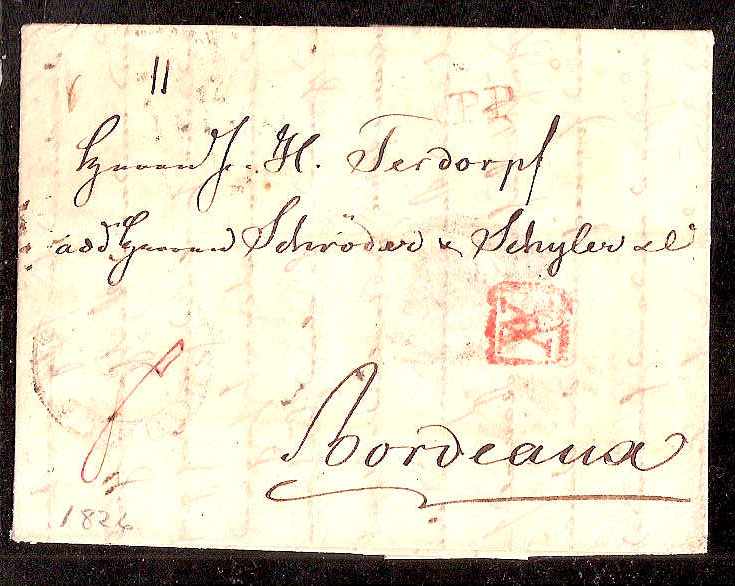 11
P.P.
Herrn J. H. Tesdorpf
add Herren Schröder & Schyler & C
Bordeaux
1826